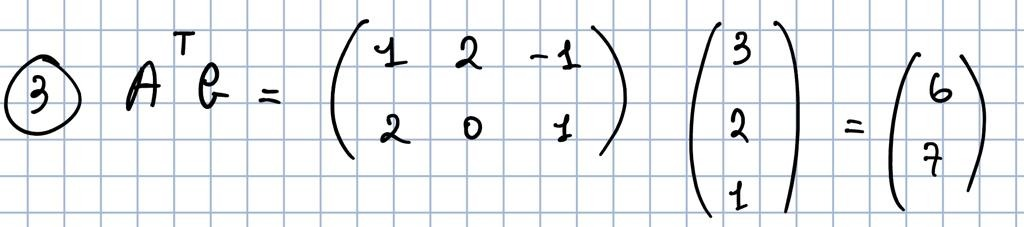 ③ Aᵀb = ( 1 2 -1 ; 2 0 1 ) ( 3 ; 2 ; 1 ) = ( 6 ; 7 )